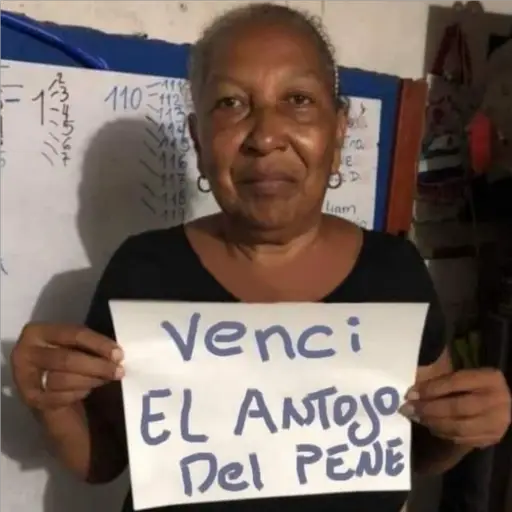 Venci
EL ANTOJO
Del PENE
110
111
112
113
114
115
116
117
118
1
2
3
4
5
6
7
liam